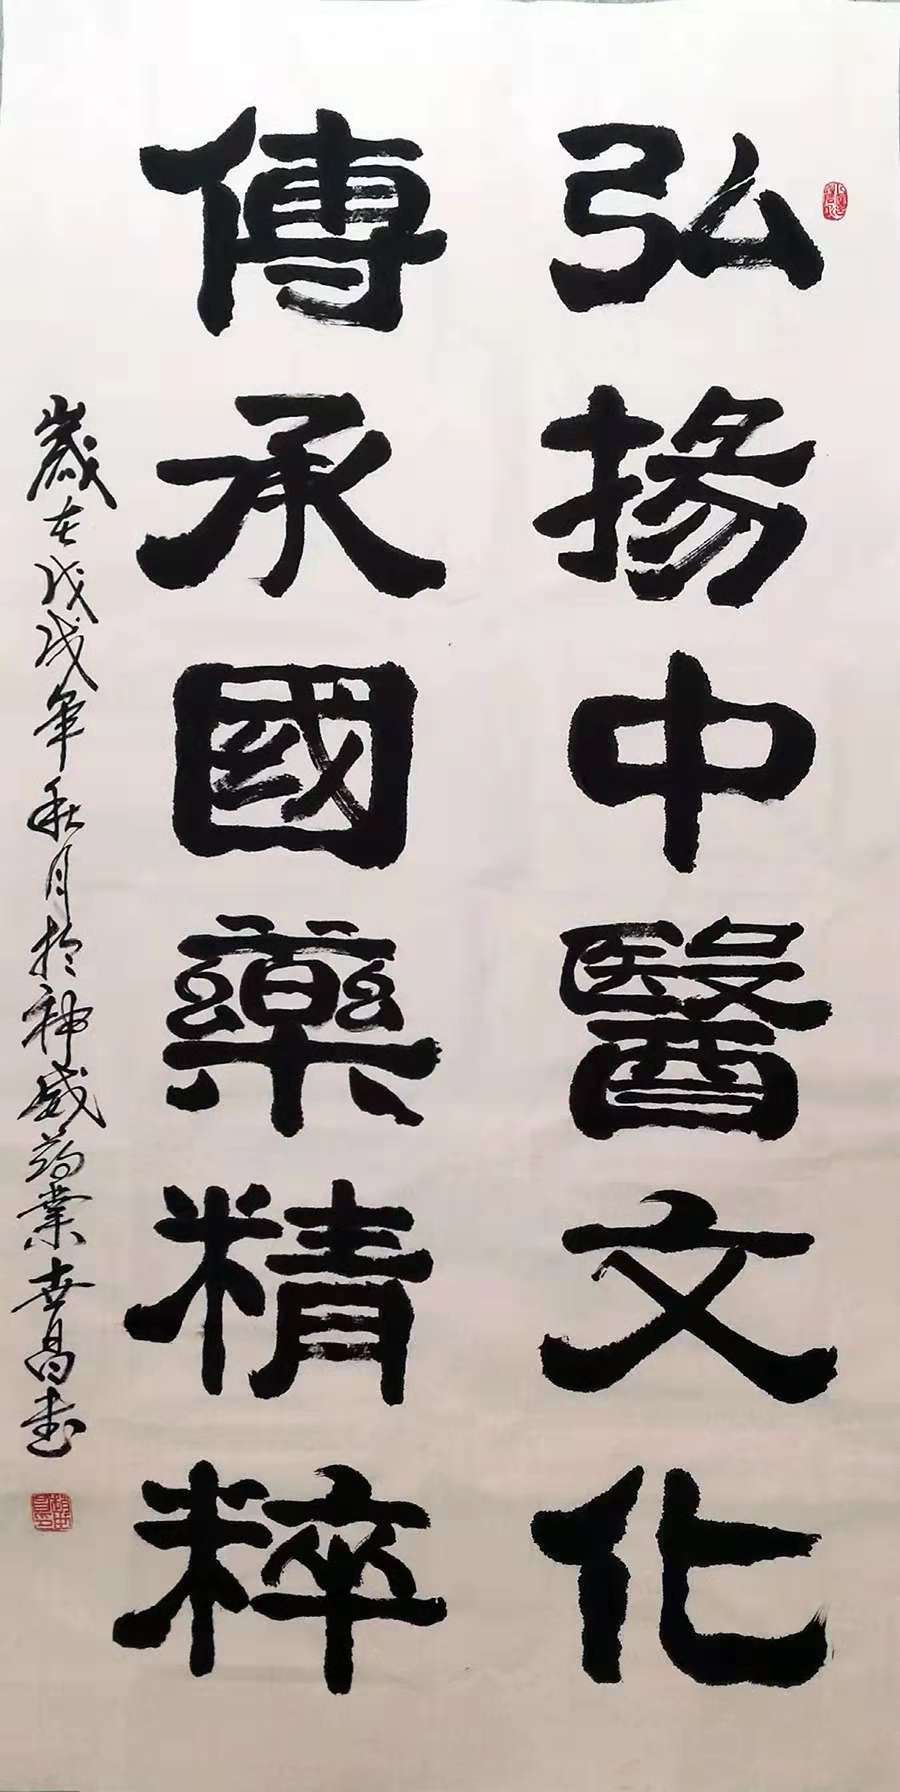 弘揚中醫文化
傳承國藥精粹
歲在戊戌年秋月於神威药業世昌书